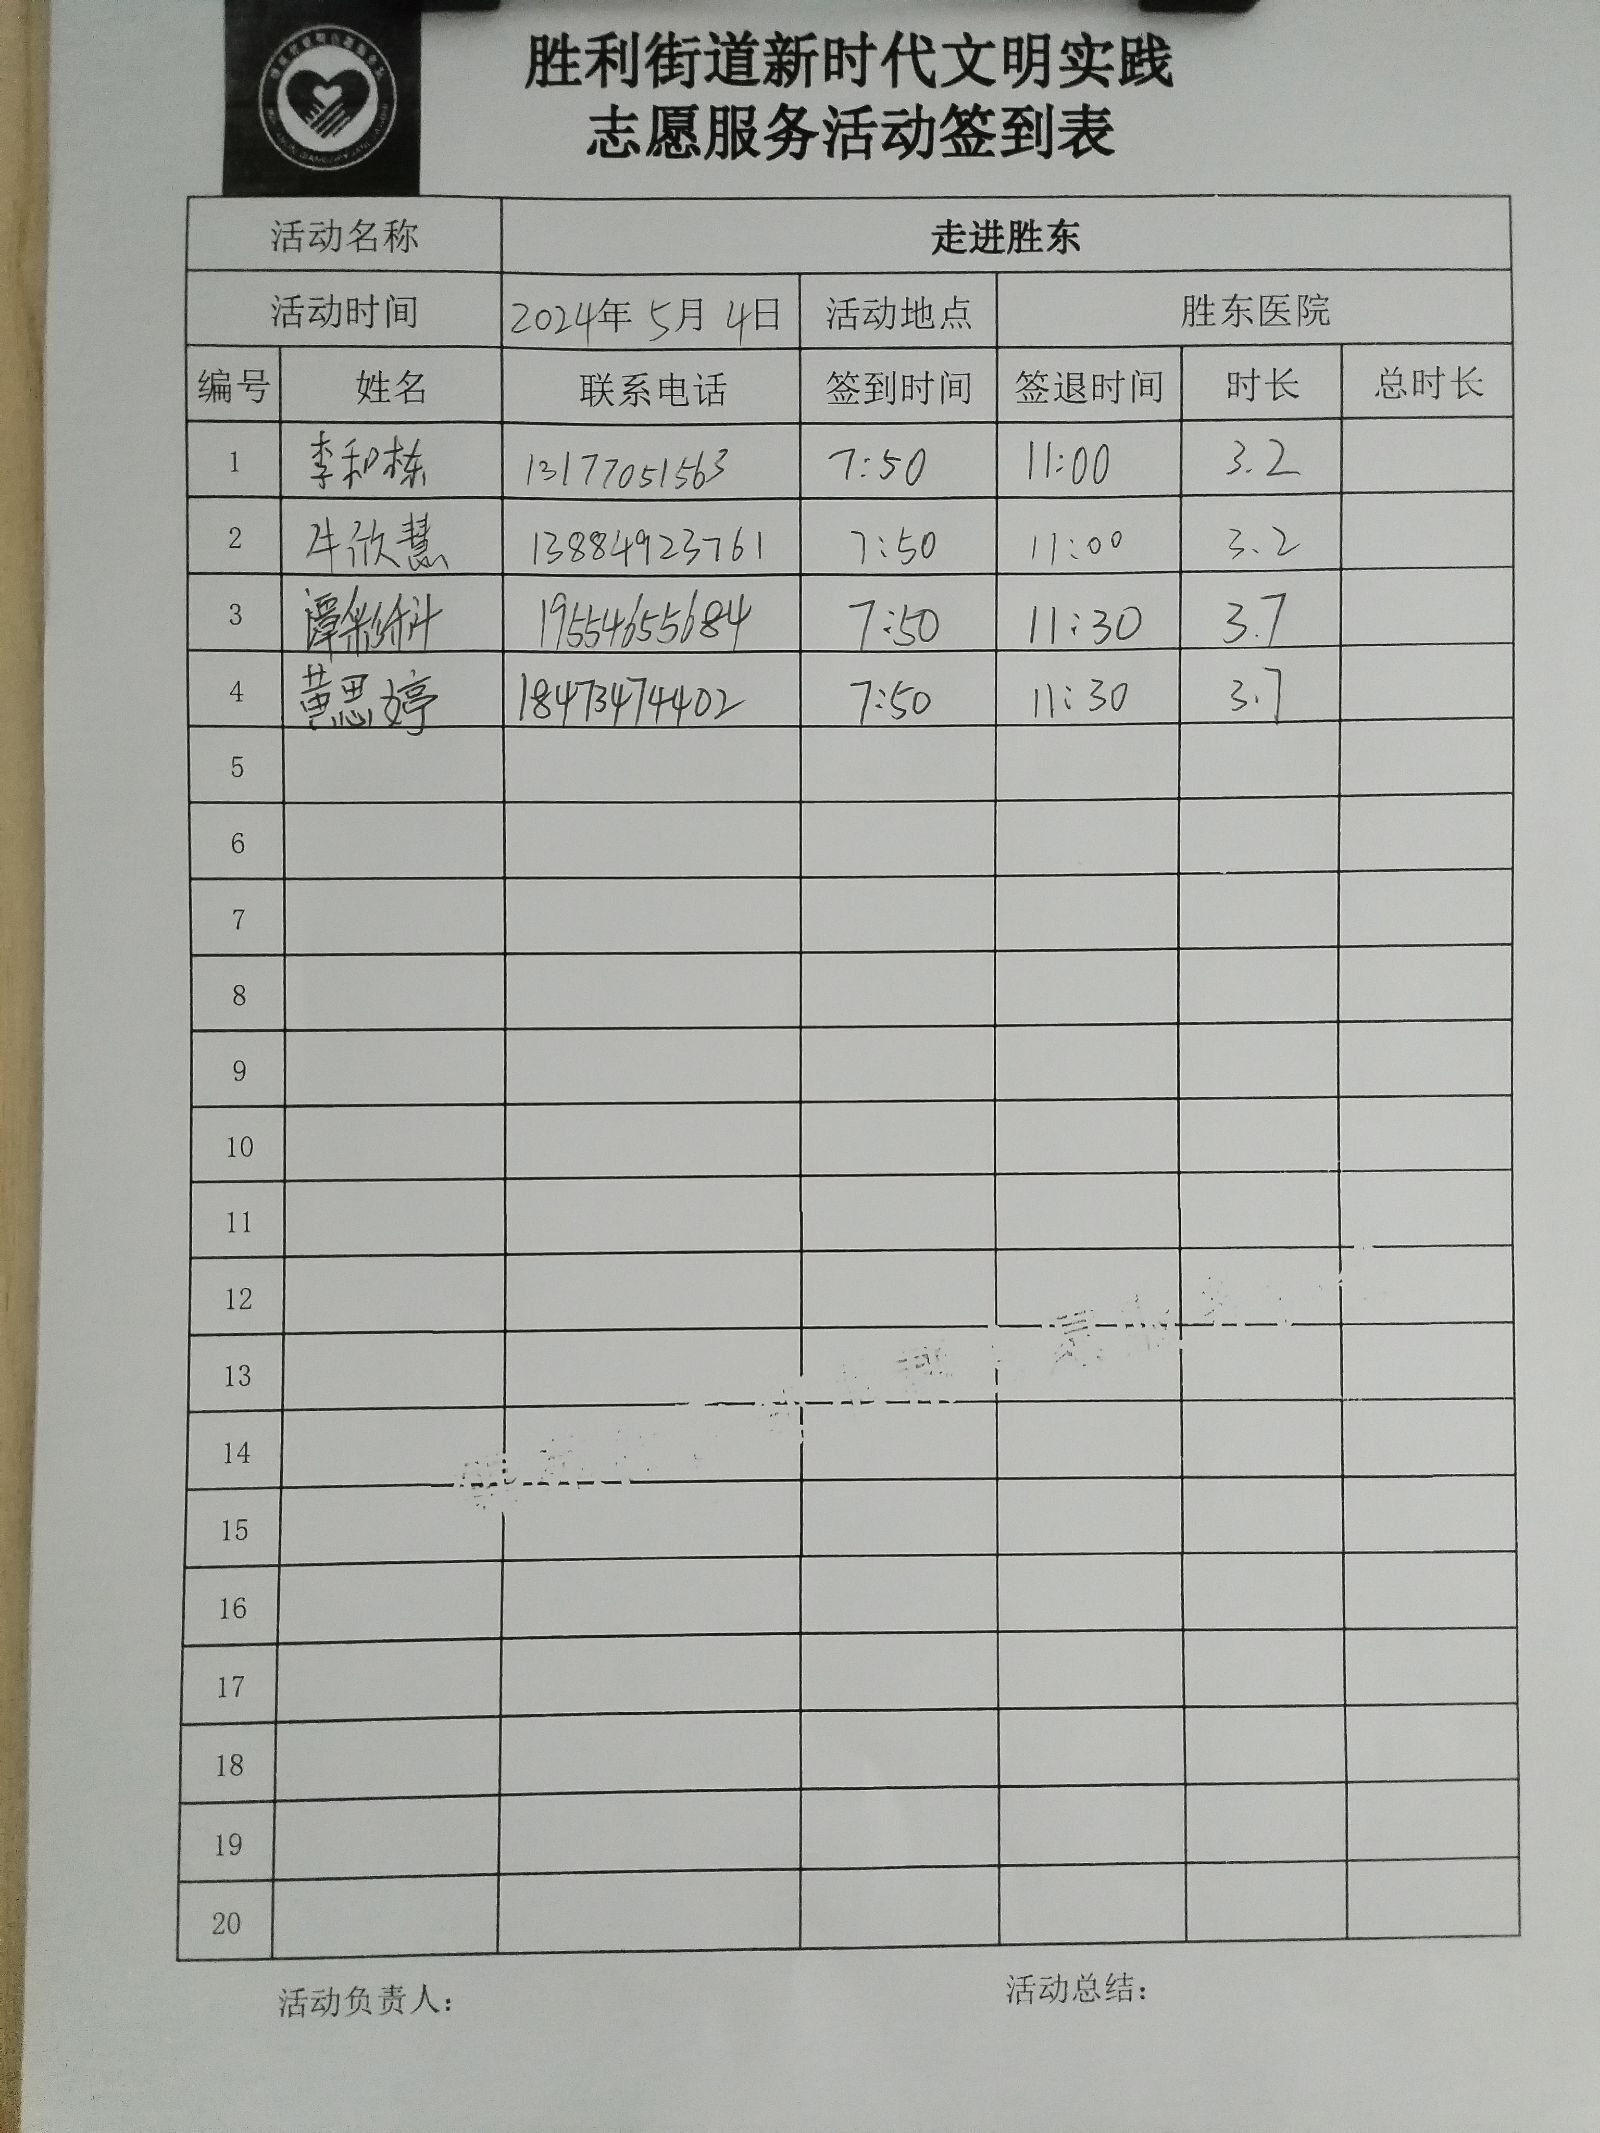 胜利街道新时代文明实践
志愿服务活动签到表
活动名称 走进胜东
活动时间 2024年 5月 4日 活动地点 胜东医院
编号 姓名 联系电话 签到时间 签退时间 时长 总时长
1 李和栋 13177051563 7:50 11:00 3.2
2 牛欣慧 13884923761 7:50 11:00 3.2
3 谭彩 19554655684 7:50 11:30 3.7
4 黄思婷 18473474402 7:50 11:30 3.7
5
6
7
8
9
10
11
12
13
14
15
16
17
18
19
20
活动负责人: 活动总结: